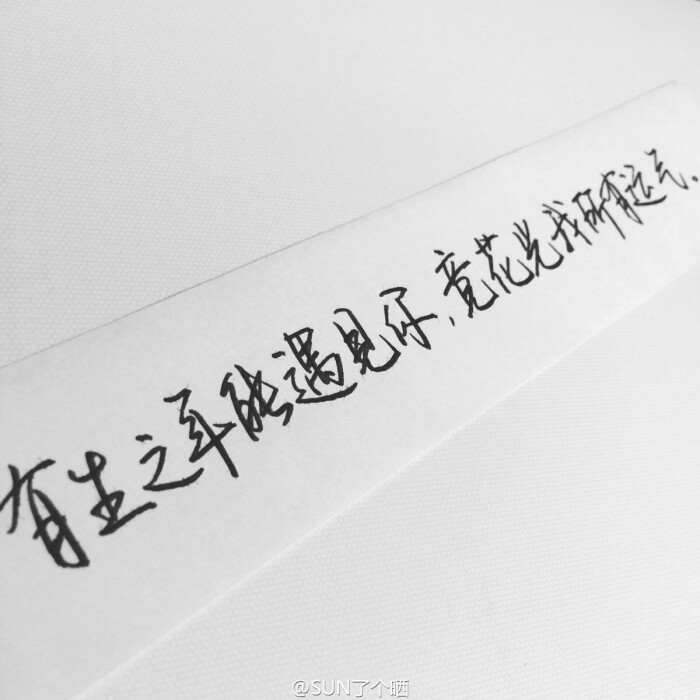 有生之年能遇见你,竟花光我所有运气.
@SUN了个晒